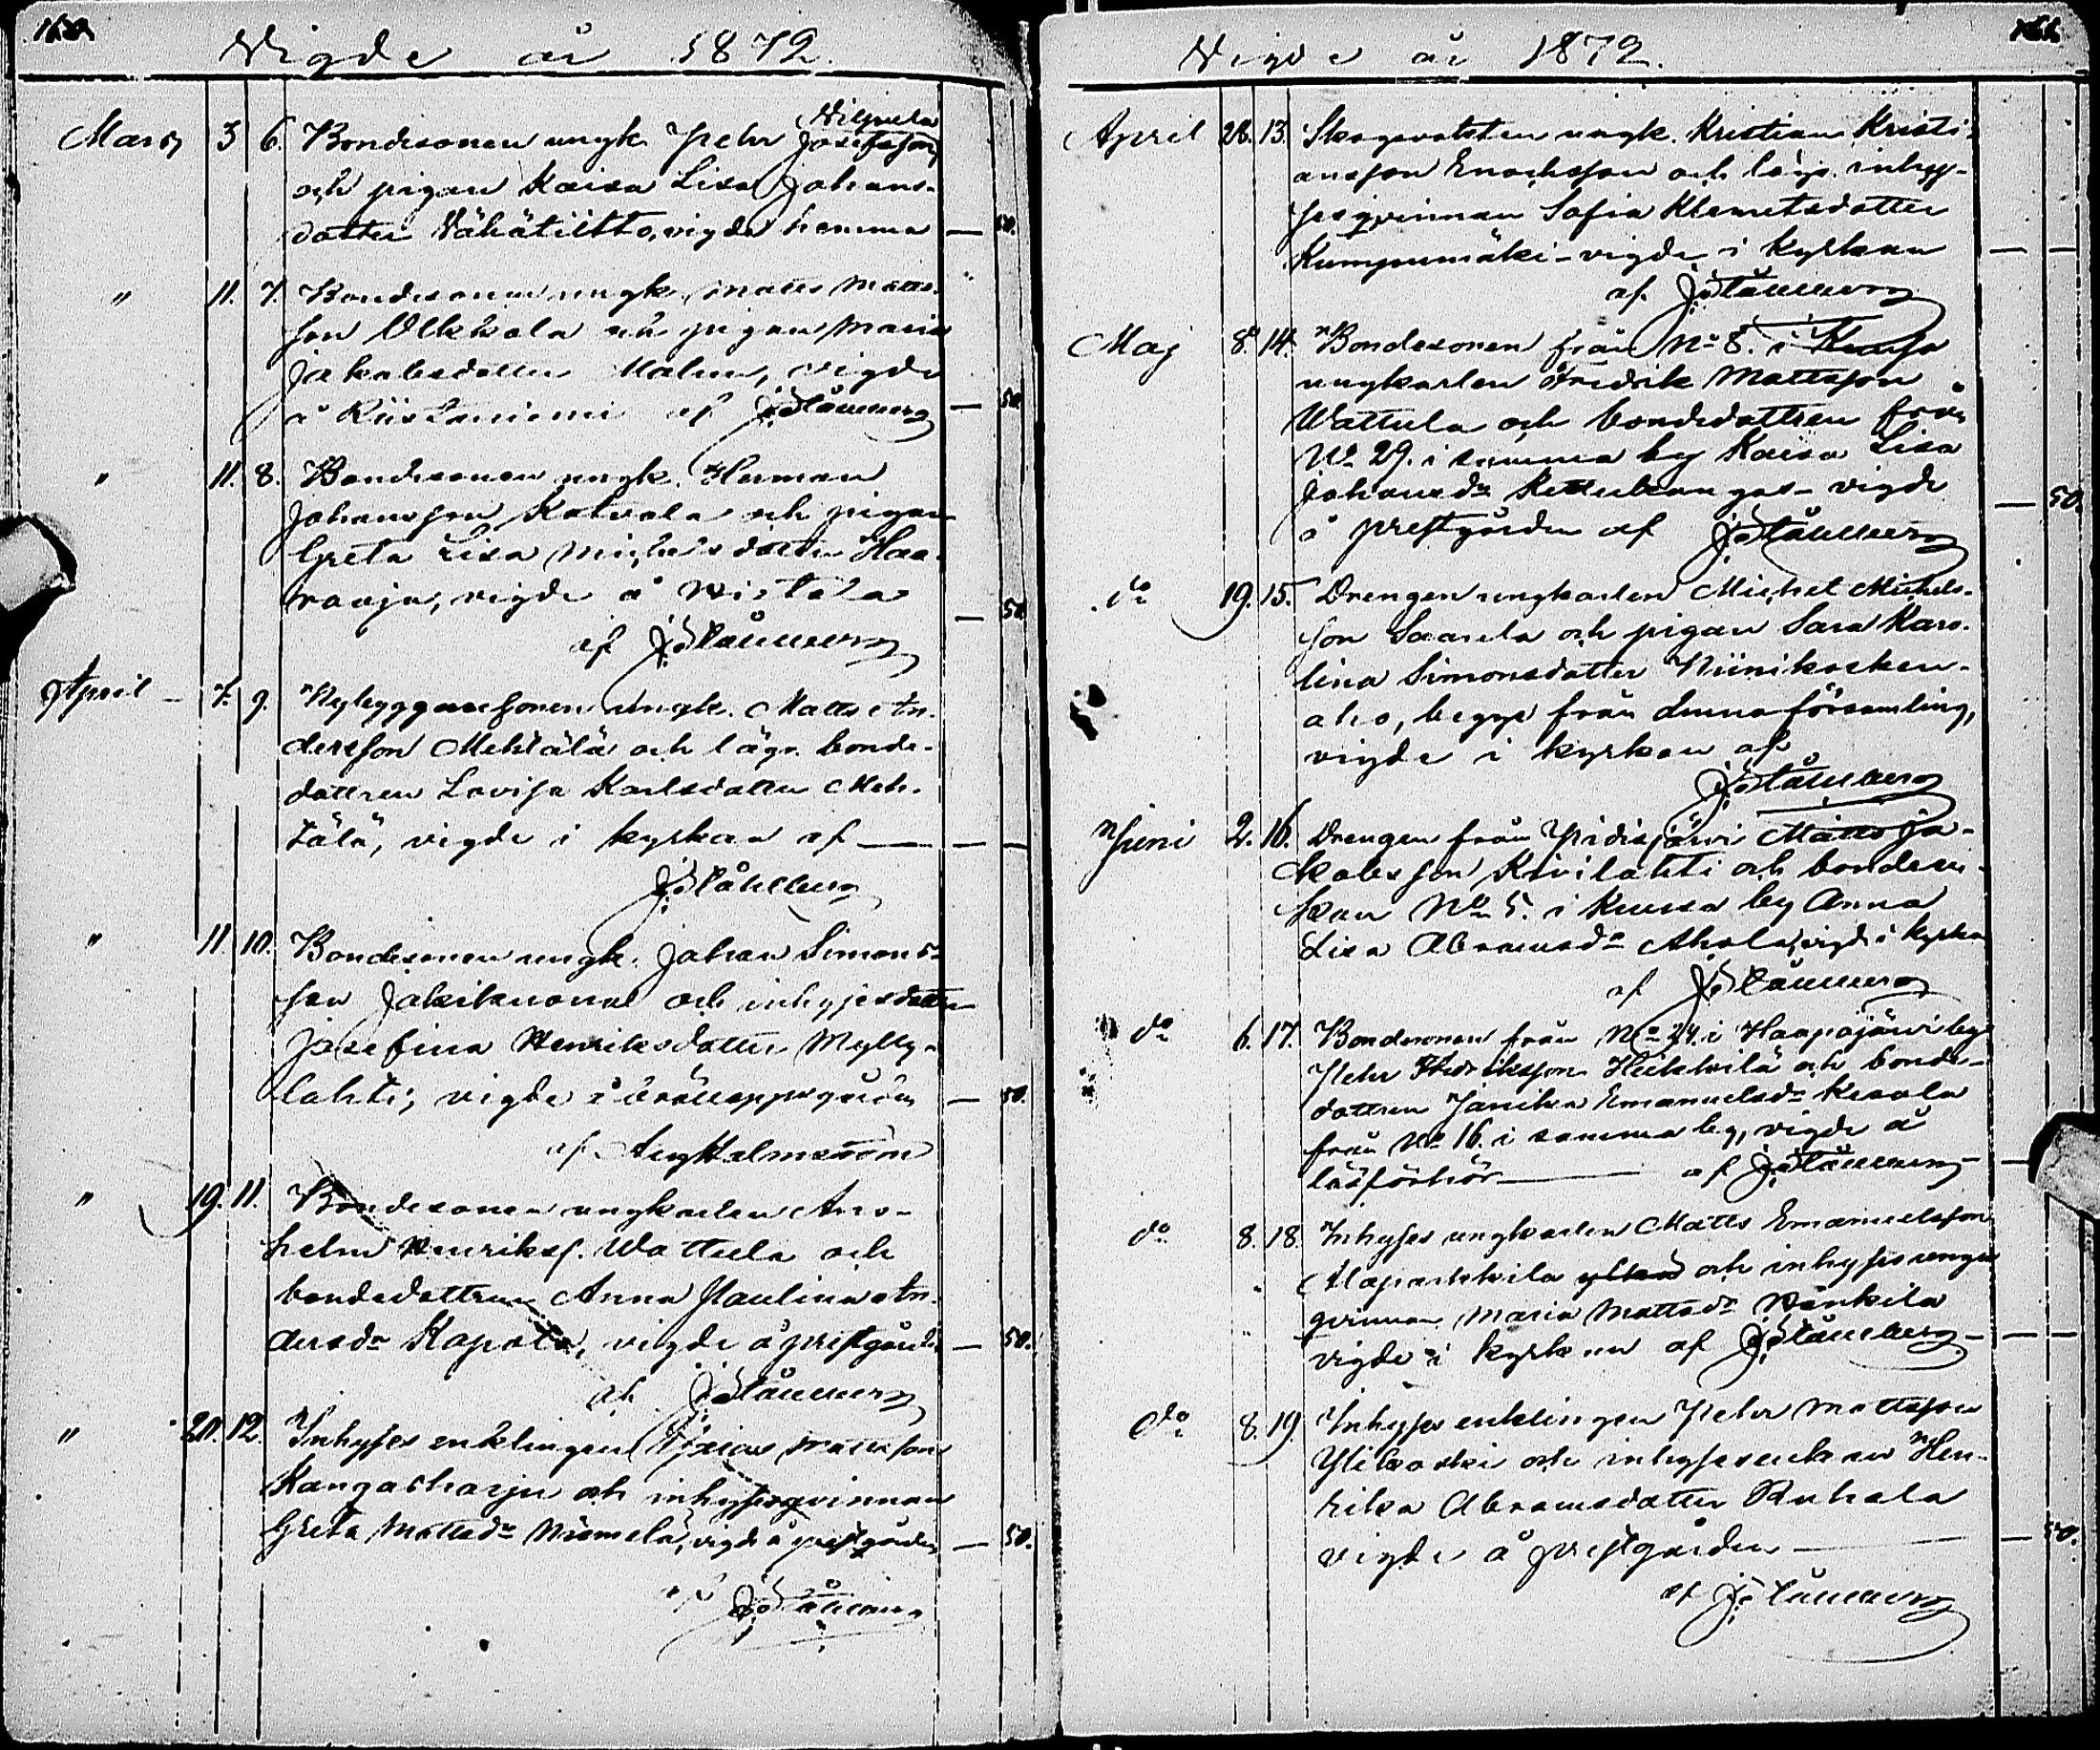 Vigde år 1872.
Mars 3 6. Bondesonen ungk. Pehr Josefsson
och pigan Kaisa Lisa Johans-
dotter Vähätiitto, vigda hemma — 50.
" 11. 7. Bondesonen ungk. Matts Matts-
son Ollikkala och pigan Maria
Jakobsdotter Malm, vigde
å Ristaniemi af J. Ståhlberg — 50
" 11. 8. Bondesonen ungk. Herman
Johansson Katvala och pigan
Greta Lisa Michelsdotter Haa-
raoja, vigde å
af J. Ståhlberg — 50
April 7. 9. Nybyggaresonen ungk. Matts An-
dersson Mehtälä och lägr. bonde-
dottren Lovisa Karlsdotter Meh-
tälä, vigde i kyrkan af — —
J. Ståhlberg
" 11. 10. Bondesonen ungk. Johan Simons-
son och inhysesdottren
Josefina Henriksdotter Mylly-
lahti; vigde å — 50.
af Aug Holmström
" 19. 11. Bondesonen ungkarlen An-
helm Henrikss. Wattula och
bondedottren Anna Paulina An-
dersdr Kapola, vigde å prestgården — 50.
af J. Ståhlberg
" 20. 12. Inhyses enklingen Mattsson
Kangasharju och inhysesqvinnan
Greta Mattsdr Niemelä, vigde å prestgården — 50.
af J. Ståhlberg
Vigde år 1872.
April 28. 13. ungk. Kristian Kristi-
ansson Enochsson och lägr. inhy-
sesqvinnan Sofia Klemetsdotter
Kumpumäki - vigde i kyrkan — —
af J. Ståhlberg
Maj 8. 14. Bondesonen från No 8. i
ungkarlen Fredrik Mattsson
Wattula och bondedottren från
No 29. i samma by Kaisa Lisa
Johansdr Kettukangas - vigde — 50.
å prestgården af J. Ståhlberg
do 19. 15. Drengen ungkarlen Michel Michels-
son Saarela och pigan Sara Karo-
lina Simonsdotter Niinikosken-
aho, begge från denna församling,
vigde i kyrkan af
J. Ståhlberg
Juni 2. 16. Drengen från Pidisjärvi Matts Ja-
kobsson Kivilahti och bonden-
kan No 5. i by Anna
Lisa Abramsdr Ahola, vigde i kyrkan
af J. Ståhlberg
do 6. 17. Bondesonen från No 24. i Haapajärvi by
Pehr Fredriksson Heikkilä och bonde-
dottren Janika Emanuelsdr Kesola
från No 16. i samma by, vigde å
läsförhör — af J. Ståhlberg —
do 8. 18. Inhyses ungkarlen Matts Emanuelsson
och inhyses unga
qvinnan Maria Mattsdr Känkilä
vigde i kyrkan af J. Ståhlberg — — —
do 8. 19. Inhyses enklingen Pehr Mattsson
Ylikoski och inhysesenkan Hen-
rika Abramsdotter Ruhala
vigde å prestgården — — 50.
af J. Ståhlberg